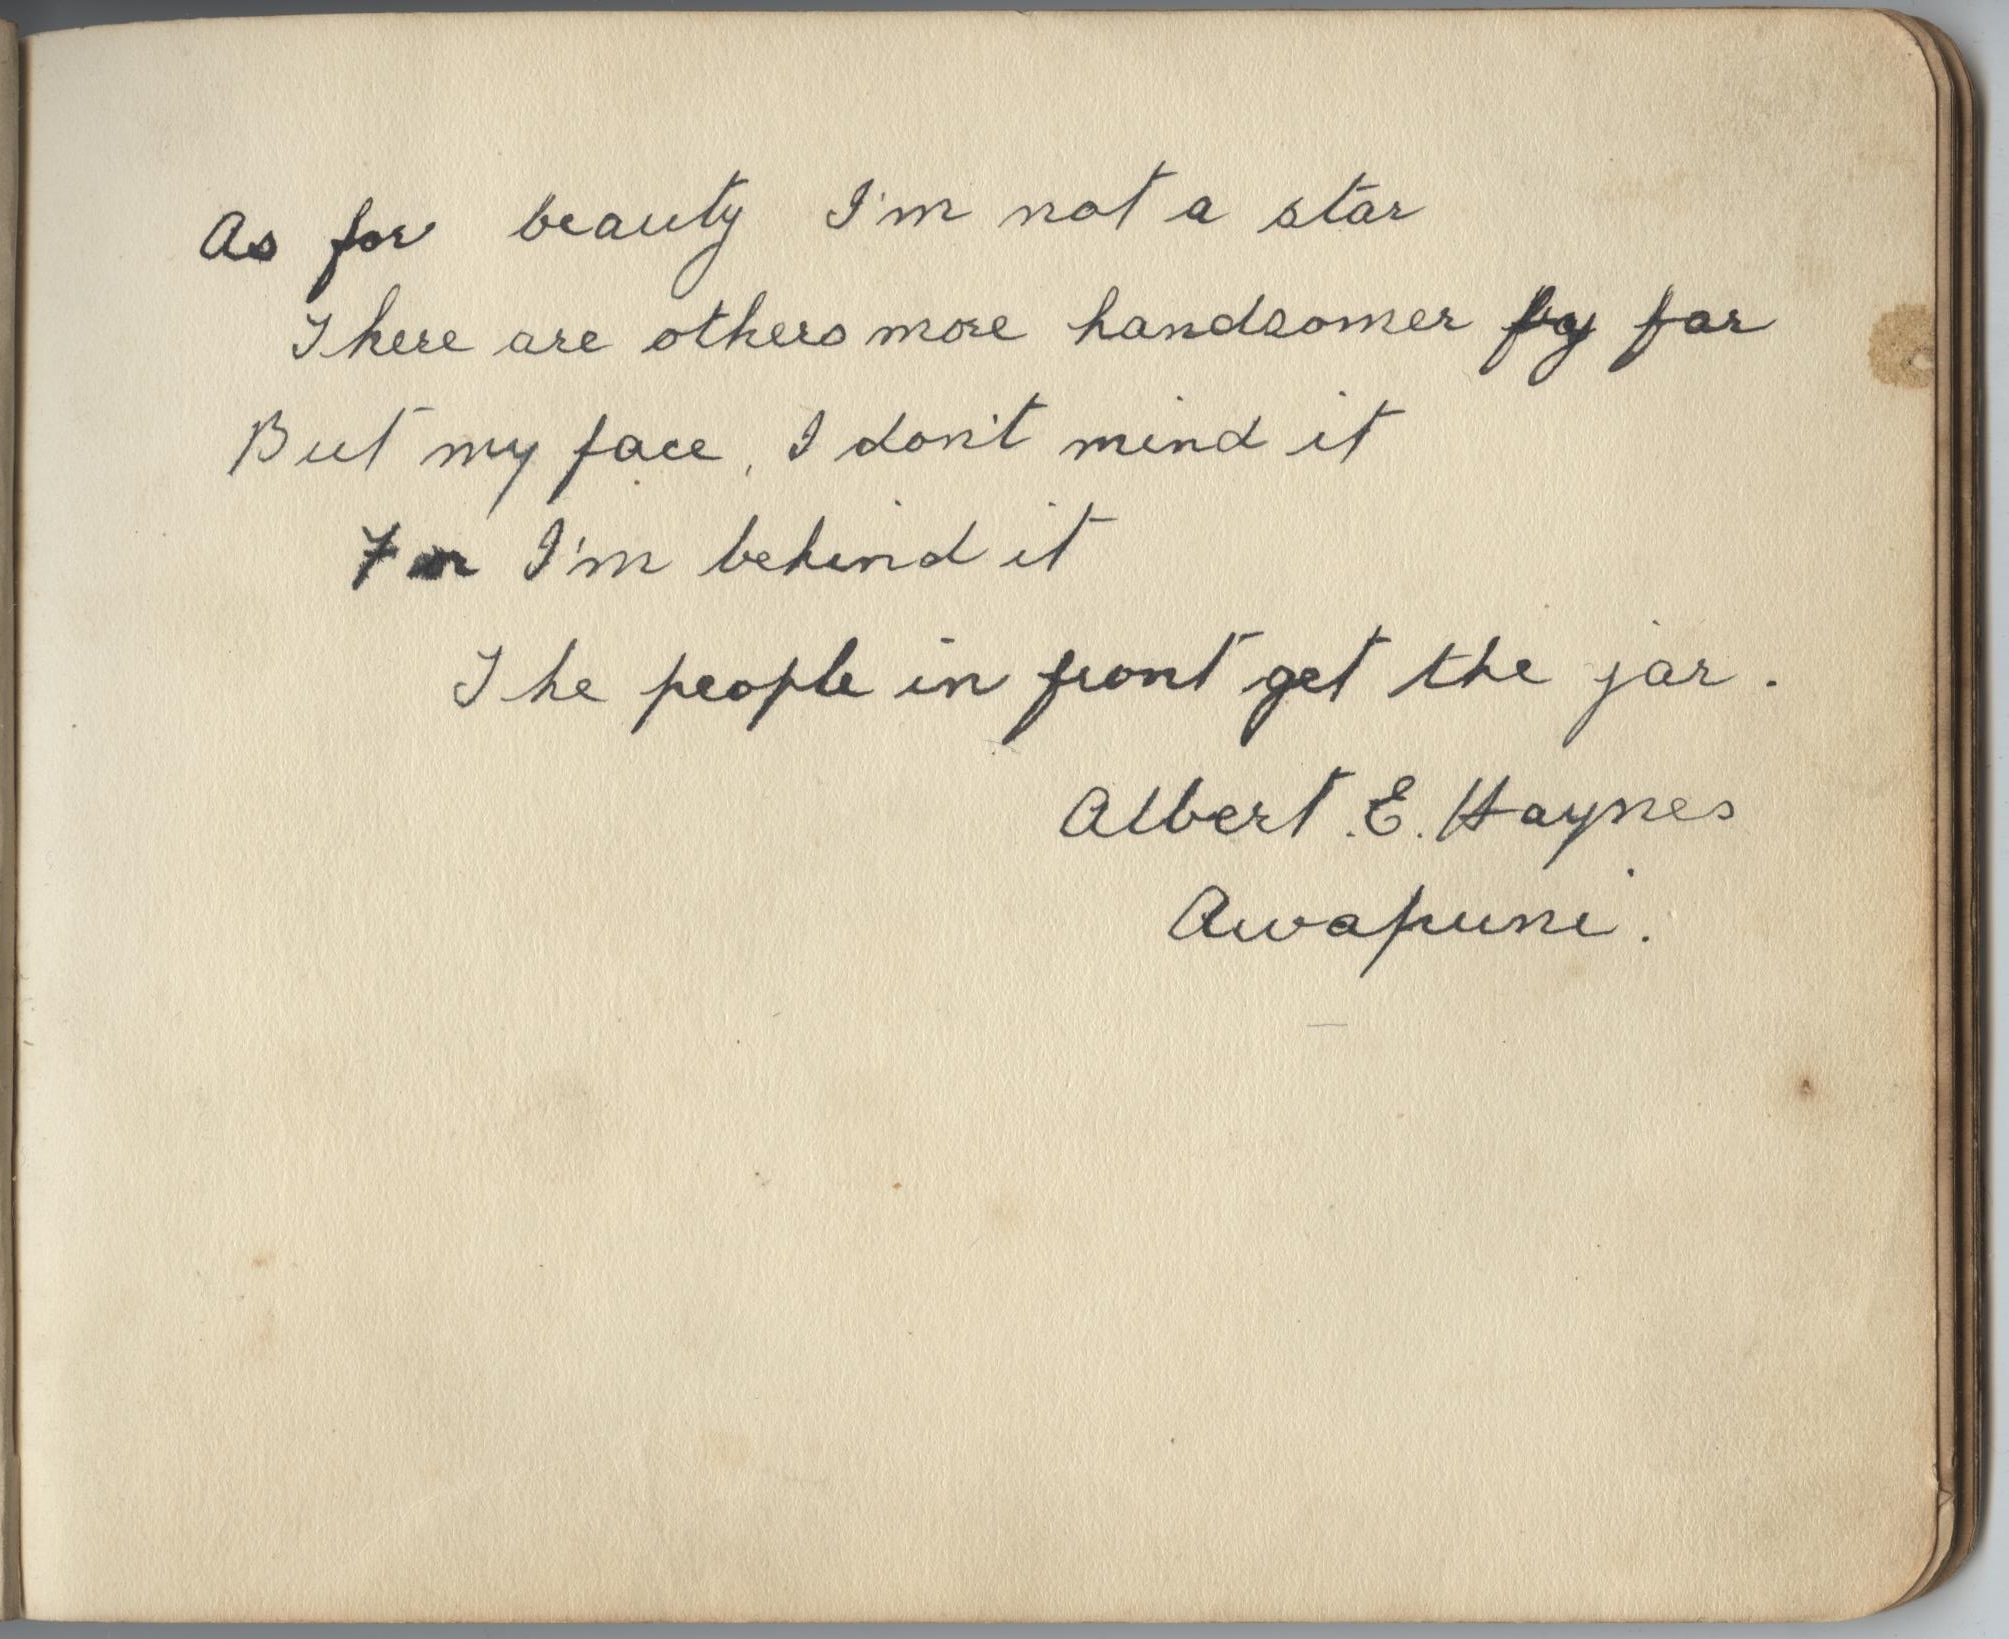 As for beauty I'm not a star
There are others more handsomer by far
But my face, I don't mind it
For I'm behind it
The people in front get the jar.
Albert. E. Haynes
Awapuni.